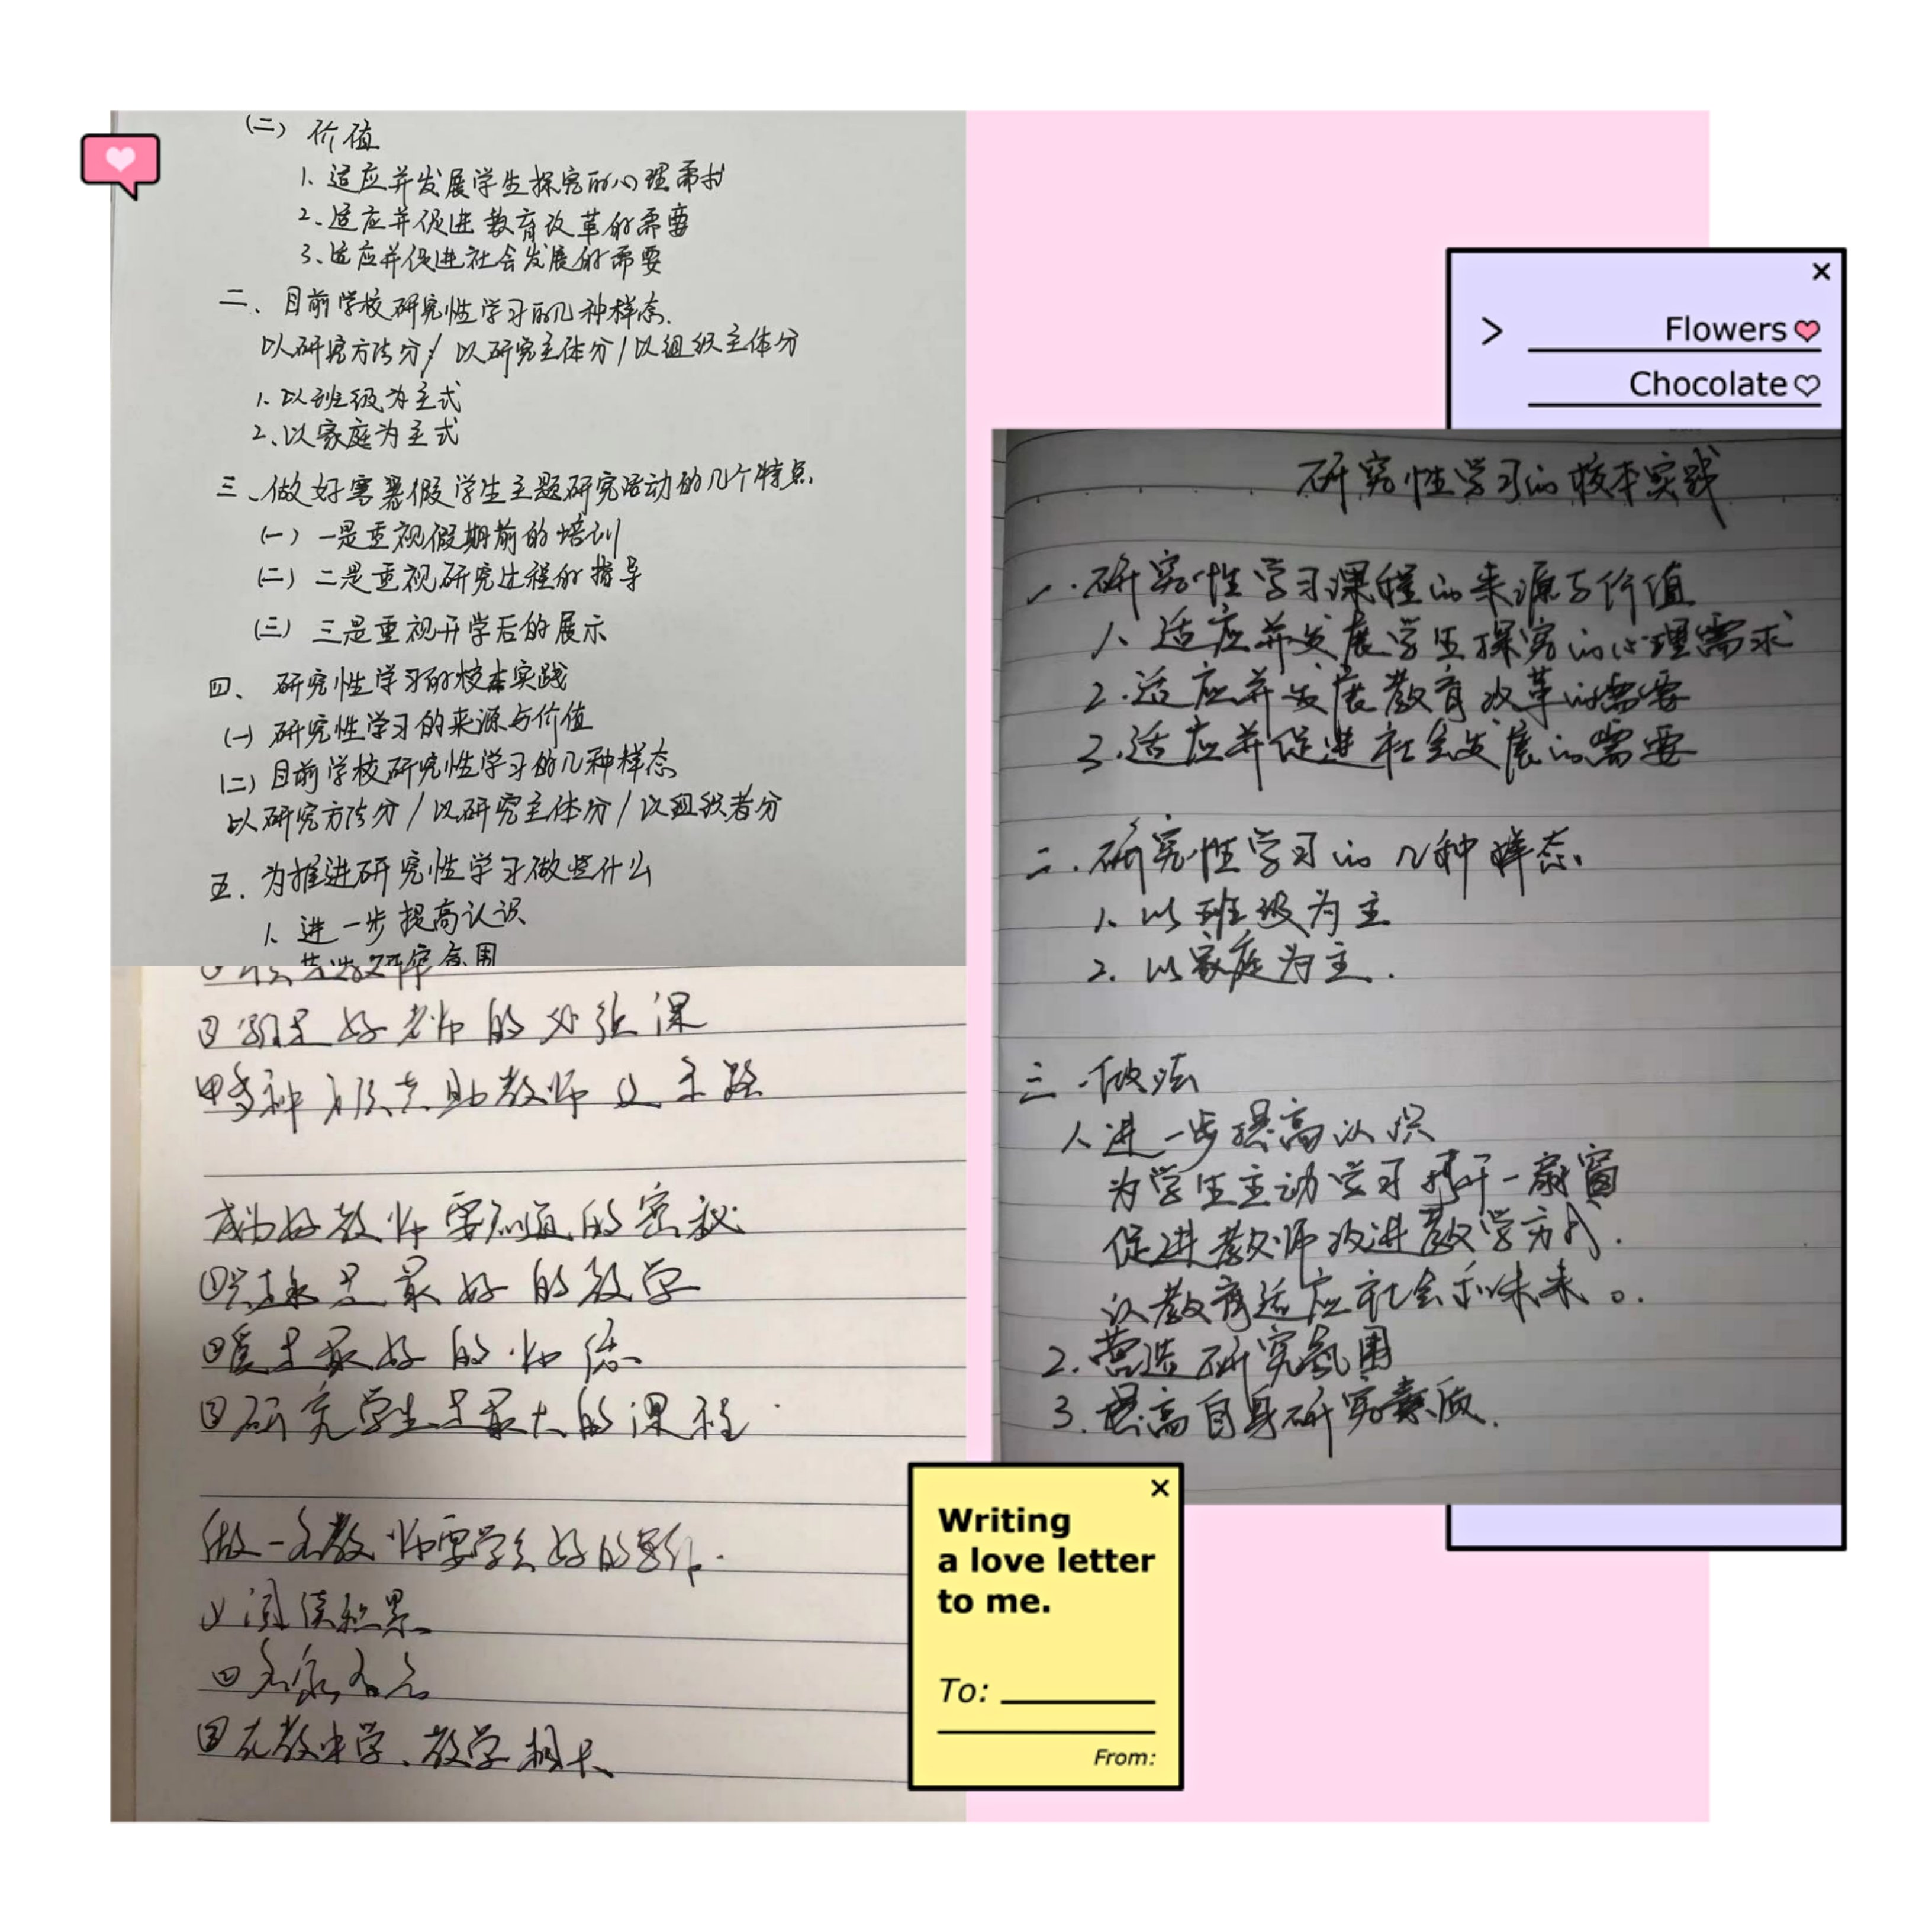 (二) 价值
1. 适应并发展学生探究的心理需求
2. 适应并促进教育改革的需要
3. 适应并促进社会发展的需要
二、目前学校研究性学习的几种样态.
以研究方法分/以研究主体分/以组织主体分
1. 以班级为主式
2. 以家庭为主式
三、做好寒暑假学生主题研究活动的几个特点.
(一) 一是重视假期前的培训
(二) 二是重视研究过程的指导
(三) 三是重视开学后的展示
四、研究性学习的校本实践
(一) 研究性学习的来源与价值
(二) 目前学校研究性学习的几种样态
以研究方法分/以研究主体分/以组织者分
五. 为推进研究性学习做些什么
1. 进一步提高认识
营造研究氛围
③ 好老师的 课
④多种 教师
成为好教师要知道的密秘
①兴趣是最好的教学
②爱是最好的师德
③研究学生是最大的课程.
做一名教师要学会好的写作.
① 阅读积累
② 名家名言
③在教中学、教学相长
Flowers
Chocolate
研究性学习的校本实践
一. 研究性学习课程的来源与价值
1. 适应并发展学生探究的心理需求
2. 适应并发展教育改革的需要
3. 适应并促进社会发展的需要
二. 研究性学习的几种样态.
1. 以班级为主
2. 以家庭为主.
三. 做法
1. 进一步提高认识
为学生主动学习打开一扇窗
促进教师改进教学方式.
让教育适应社会和未来。
2. 营造研究氛围
3. 提高自身研究素质.
Writing
a love letter
to me.
To:
From: